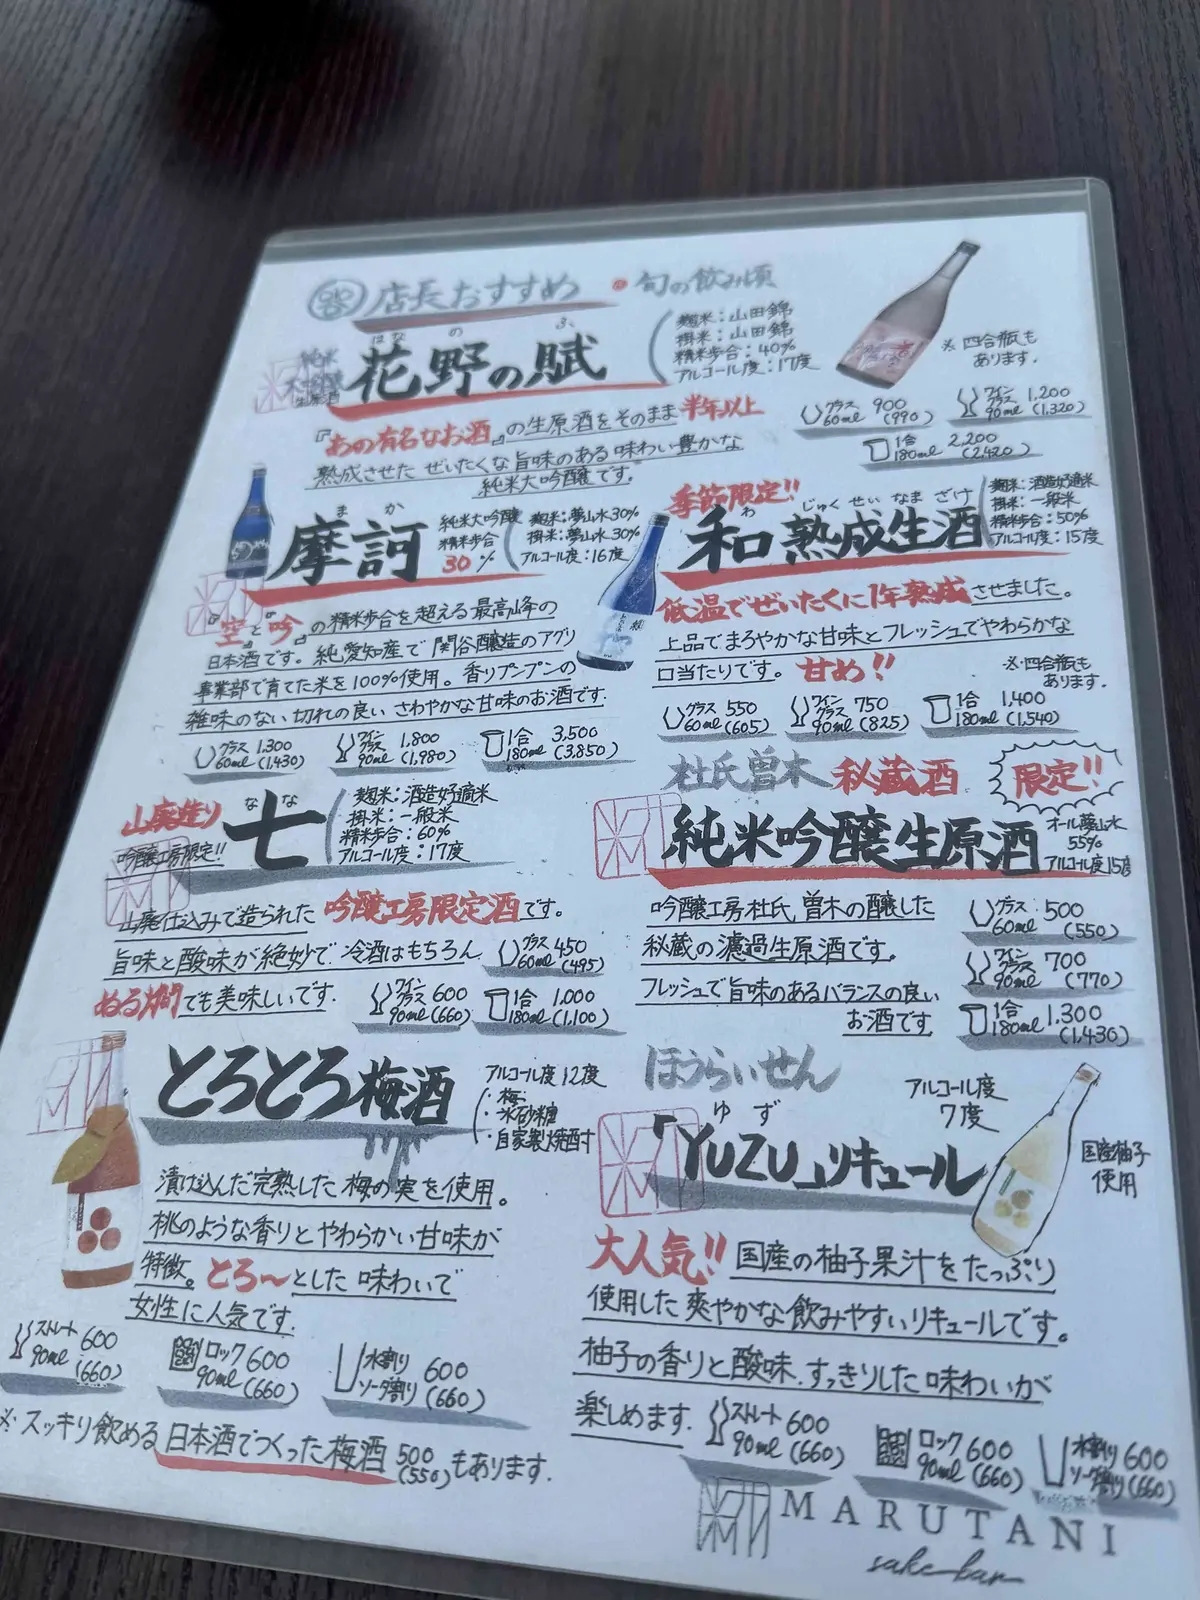 店長おすすめ 旬の飲み頃
純米大吟醸生原酒
はなのふ
花野の賦
麹米：山田錦
掛米：山田錦
精米歩合：40%
アルコール度：17度
※四合瓶も
あります。
『あの有名なお酒』の生原酒をそのまま半年以上
熟成させた ぜいたくな旨味のある味わい豊かな
純米大吟醸です。
グラス 900
60ml (990)
ワイン 1,200
90ml (1,320)
1合 2,200
180ml (2,420)
まか
摩訶
純米大吟醸
精米歩合
30%
麹米：夢山水30%
掛米：夢山水30%
アルコール度：16度
『空』と『吟』の精米歩合を超える最高峰の
日本酒です。純愛知産で関谷醸造のアグリ
事業部で育てた米を100%使用。香りプンプンの
雑味のない切れの良いさわやかな甘味のお酒です。
グラス 1,300
60ml (1,430)
ワイングラス 1,800
90ml (1,980)
1合 3,500
180ml (3,850)
季節限定!!
わ じゅくせいなまざけ
和 熟成生酒
麹米：酒造好適米
掛米：一般米
精米歩合：50%
アルコール度：15度
低温でぜいたくに1年熟成させました。
上品でまろやかな甘味とフレッシュでやわらかな
口当たりです。甘め!!
※四合瓶も
あります。
グラス 550
60ml (605)
ワイングラス 750
90ml (825)
1合 1,400
180ml (1,540)
山廃造り
吟醸工房限定!!
なな
七
麹米：酒造好適米
掛米：一般米
精米歩合：60%
アルコール度：17度
山廃仕込みで造られた 吟醸工房限定酒です。
旨味と酸味が絶妙で、冷酒はもちろん
ぬる燗でも美味しいです。
グラス 450
60ml (495)
ワイングラス 600
90ml (660)
1合 1,000
180ml (1,100)
杜氏曽木 秘蔵酒
限定!!
純米吟醸生原酒
オール夢山水
55%
アルコール度15度
吟醸工房杜氏、曽木の醸した
秘蔵の濾過生原酒です。
フレッシュで旨味のあるバランスの良い
お酒です
グラス 500
60ml (550)
ワイングラス 700
90ml (770)
1合 1,300
180ml (1,430)
とろとろ梅酒
アルコール度12度
・梅
・氷砂糖
・自家製焼酎
漬け込んだ完熟した梅の実を使用。
桃のような香りとやわらかい甘味が
特徴。とろ〜とした味わいで
女性に人気です。
ストレート 600
90ml (660)
ロック 600
90ml (660)
水割り 600
ソーダ割り (660)
※スッキリ飲める日本酒でつくった梅酒 500 (550) もあります。
ほうらいせん
ゆず
「YUZU」リキュール
アルコール度
7度
国産柚子
使用
大人気!! 国産の柚子果汁をたっぷり
使用した爽やかな飲みやすいリキュールです。
柚子の香りと酸味、すっきりした味わいが
楽しめます。
ストレート 600
90ml (660)
ロック 600
90ml (660)
水割り 600
ソーダ割り (660)
MARUTANI
sake-bar